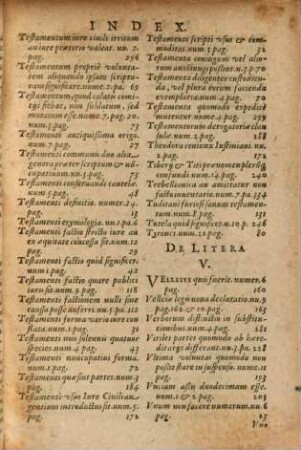 INDEX.
Testamentum iure ciuili irritum
an iure prætorio valeat. nu. 2.
pag. 296
Testamentum propriè volunta-
rem aliquando ipsam scriptu-
ram significare. num. 2. pa. 69
Testamentum, quod calato comi-
tijs fiebat, non sublatum, sed
mutatum esse. num. 7. pag. 20.
num. 3. 73
Testamenti antiquissima origo.
num. 7 pag. 27
Testamenti communis duo alia
genera præter scriptum & nu-
cupatinum. num. 3. pag. 31
Testamenti conseruandi cautelæ.
num. 3 pag. 48
Testamenti definitio. numer. 24.
pag. 13
Testamenti etymologia. nu. 1. pa 6
Testamenti factio stricto iure an
ex æquitate concessa sit num. 12
pag. 29
Testamenti factio quid significet.
num. 1 pag. 42
Testamenti factio quare publici
iuris sit. num. 2. pag. 31
Testamenti factionem nulli sine
causa posse auferri. nu. 9. pa. 112
Testamenti forma varia iure con
stituta. num. 1 pag. 31
Testamenti non solennis quatuor
species. num. 4 pag. 29
Testamenti nuncupatius forma.
num. 1 pag. 31
Testamenti quæ sint partes. num. 3
pag. 184
Testamenti vsus Iure Ciuili an
gentium introductus sit. num. 5
pag. 172
Testamenti scripti vsus & com-
moditas. num. 5 pag. 32
Testamenta coniugum vel alio-
rum an coniungi possint. n. 3. 70
Testamenta diligenter custodien-
da, vel plura eorum facienda
exemplaria. num. 4 pag. 70
Testamenta quomodo expedite
mutentur num. 2 pag. 286
Testamentorum derogatoriæ clau
sulæ. num. 2 pag. 288
Theodora coniunx Iustiniani. nu.
2. pag. 172
Titeri & Titi prænomen plerisq;
confundi. num. 14 pag. 240
Trebellianica an amittatur non
facto inuentario. num. 7 pa. 234
Tudicani furiosi sanum testamen-
tum. num. 8 pag. 131
Tutela quid significet. n. 2. p. 196
Tyranni. num. 21 pag. 80
DE LITERA
V.
VELLEIVS quis fuerit. numer. 6
pag. 160
Velleiæ legis noua declaratio nu. 9
pag. 160 & 10 pag. 163
Verborum distinctio in substitu-
tionibus. num. 4 pag. 281
Veriles partes quomodo ab hære-
dis arijs differant. n. 3. pa. 218
Vltima voluntas quomodo non
possit stare in suspenso. nume. 11
pag. 193
Vnciam assis duodecimam esse.
num. 1 & 2 pag. 203
Vnum non facere numerum. nu. 6
pag. 27
Vnu